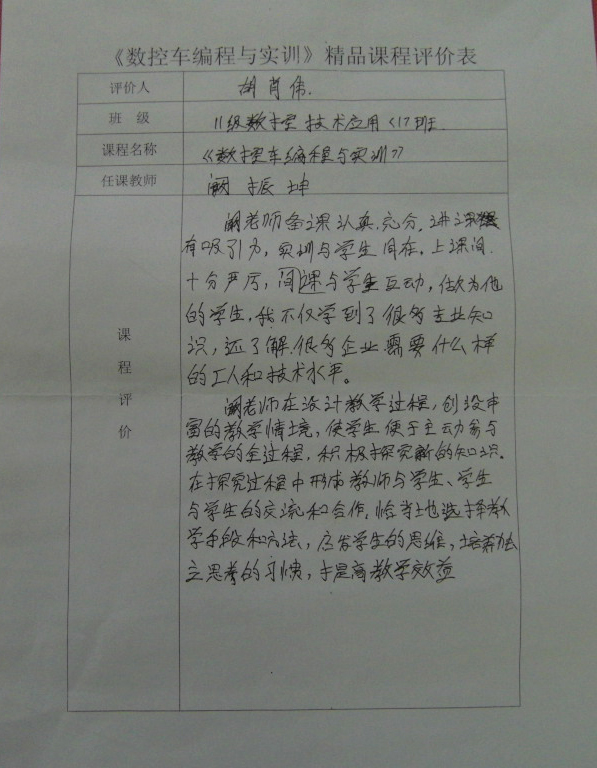 《数控车编程与实训》精品课程评价表
评价人 胡肖伟.
班 级 11级数控技术应用<17班
课程名称 《数控车编程与实训》
任课教师 阚振坤
课程评价
阚老师备课认真,充分,讲课很
有吸引力,实训与学生同在。上课间
十分严厉,间课与学生互动,做为他
的学生,我不仅学到了很多专业知
识,还了解很多企业需要什么样
的工人和技术水平。
阚老师在设计教学过程,创设丰
富的教学情境,使学生便于主动参与
教学的全过程,积极探究新的知识。
在探究过程中形成教师与学生、学生
与学生的交流和合作,恰当地选择教
学手段和方法,启发学生的思维,培养独
立思考的习惯,提高教学效益